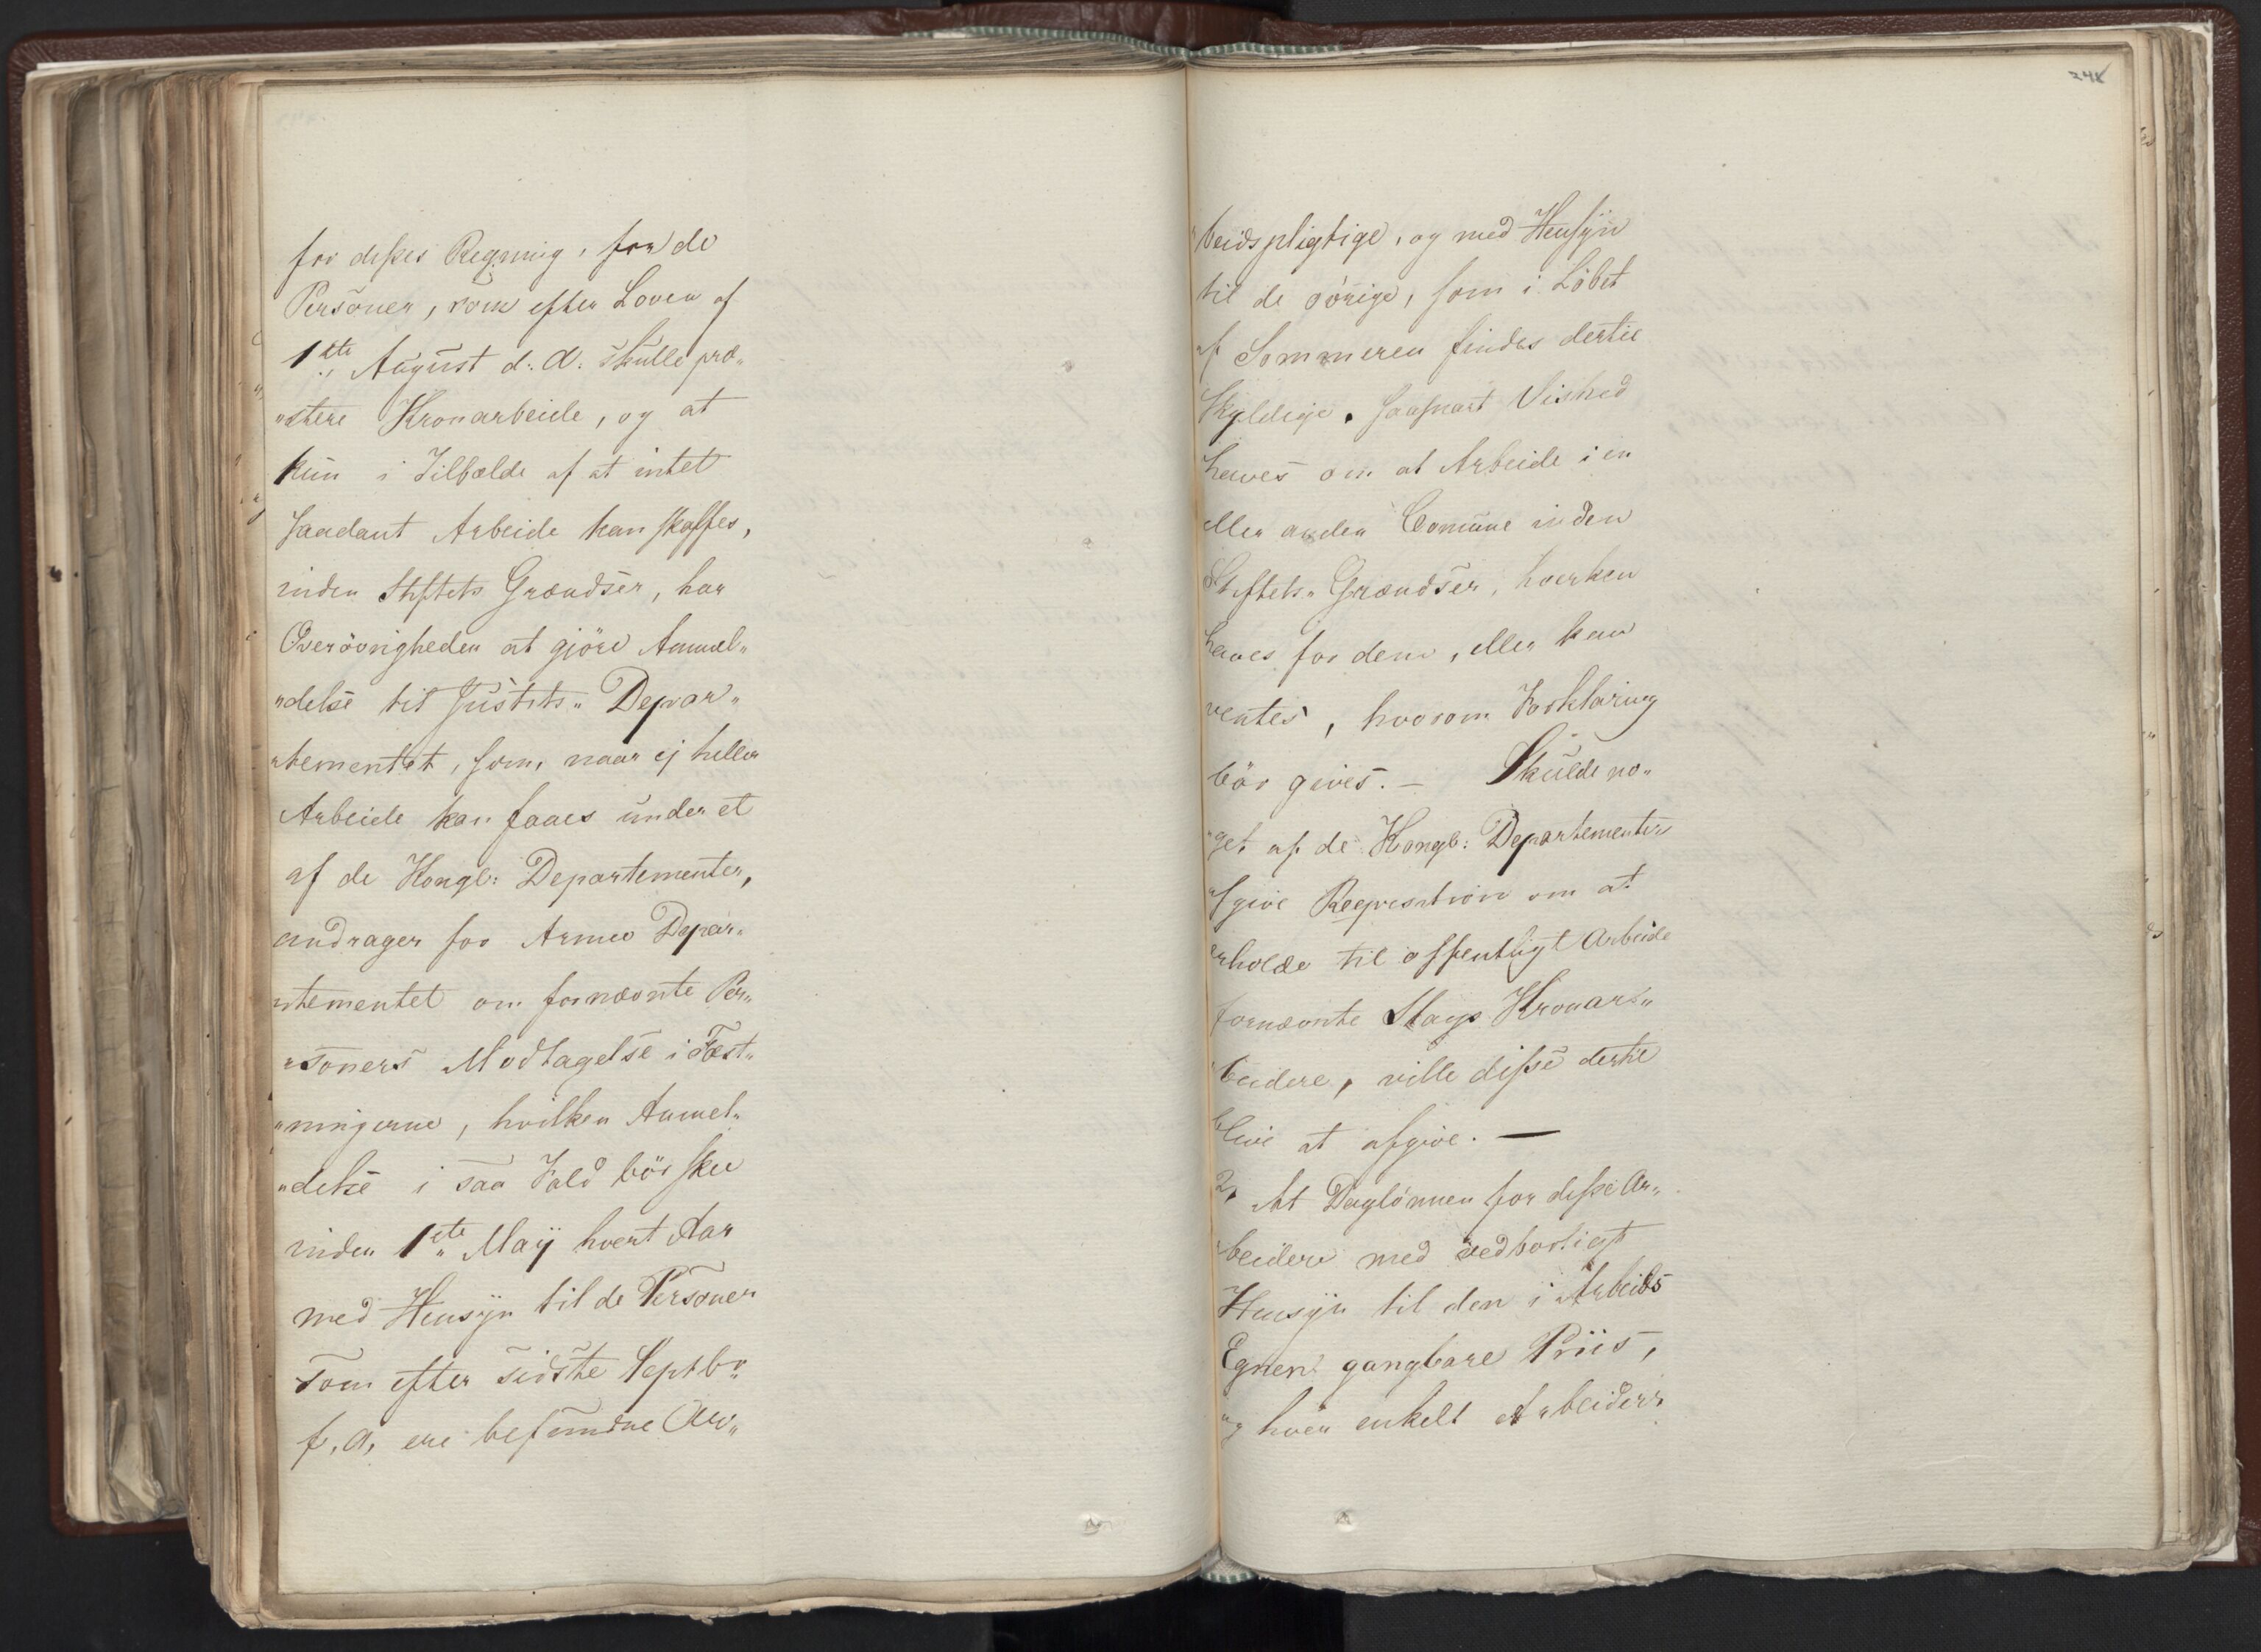 for disses Regning, for de
Personer, som efter Loven af
1ste August d: A: skulle præ„
„stere Kronarbeide, og at
kun i Tilfælde af at intet
saadant Arbeide kan skaffes,
inden Stiftets Grændser, har
Overövrigheden at gjöre Anmel„
„delse til Justits„ Depar„
„tementet, som, naar ej heller
Arbeide kan faaes under et
af de Kongl: Departementer,
andrager for Armee Depar„
„tementet om fornævnte Per„
„soners Modtagelse i Fæst„
„ningerne, hvilken Anmel„
„delse i saa Fald bör skee
inden 1ste Maÿ hvert Aar
med Hensÿn til de Personer
som efter sidste Septbr
f. A. ere befundne Ar„
248
„beidspligtige, og med Hensÿn
til de övrige, som i Löbet
af Sommeren findes dertil
skyldige, saasnart Vished
haves om at Arbeide i en
eller anden Comune inden
Stiftets„ Grændser, hverken
haves for dem, eller kan
ventes, hvorom Forklaring
bör gives. – Skulde no„
„get af de Kongl: Departementer
afgive Reqvisition om at
erholde til offentligt Arbeide
fornævnte Slags Kronar„
„beidere, ville disse dertil
blive at afgive. —
2, At Daglönnen for disse Ar„
„beidere med vedborligt
Hensÿn til den i Arbeids
Egnen gangbare Priis,
og hver enkelt Arbeiders